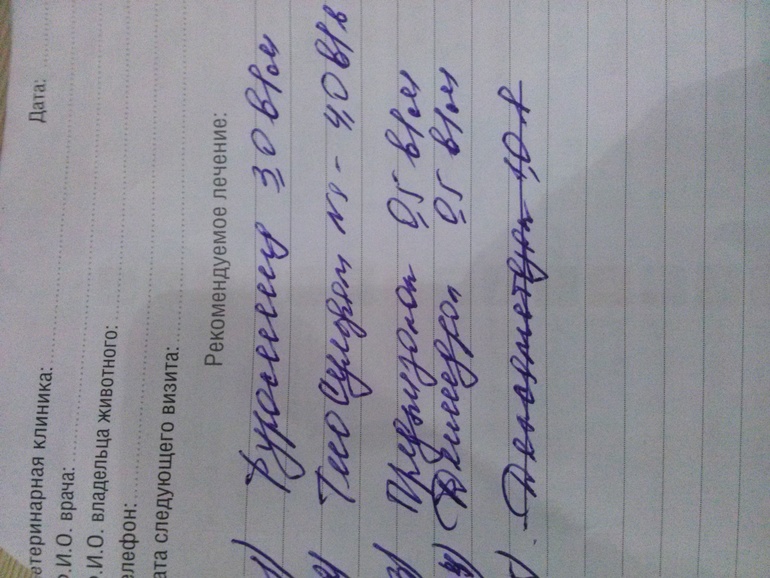 етеринарная клиника:
Дата:
Ф.И.О. врача:
Ф.И.О. владельца животного:
елефон:
ата следующего визита:
Рекомендуемое лечение:
1) 3,0 в/м
2) Тиосульфат на - 4,0 в/в
3) Преднизолон 0,5 в/м
4) Димедрол 0,5 в/м
5) 1,0 в